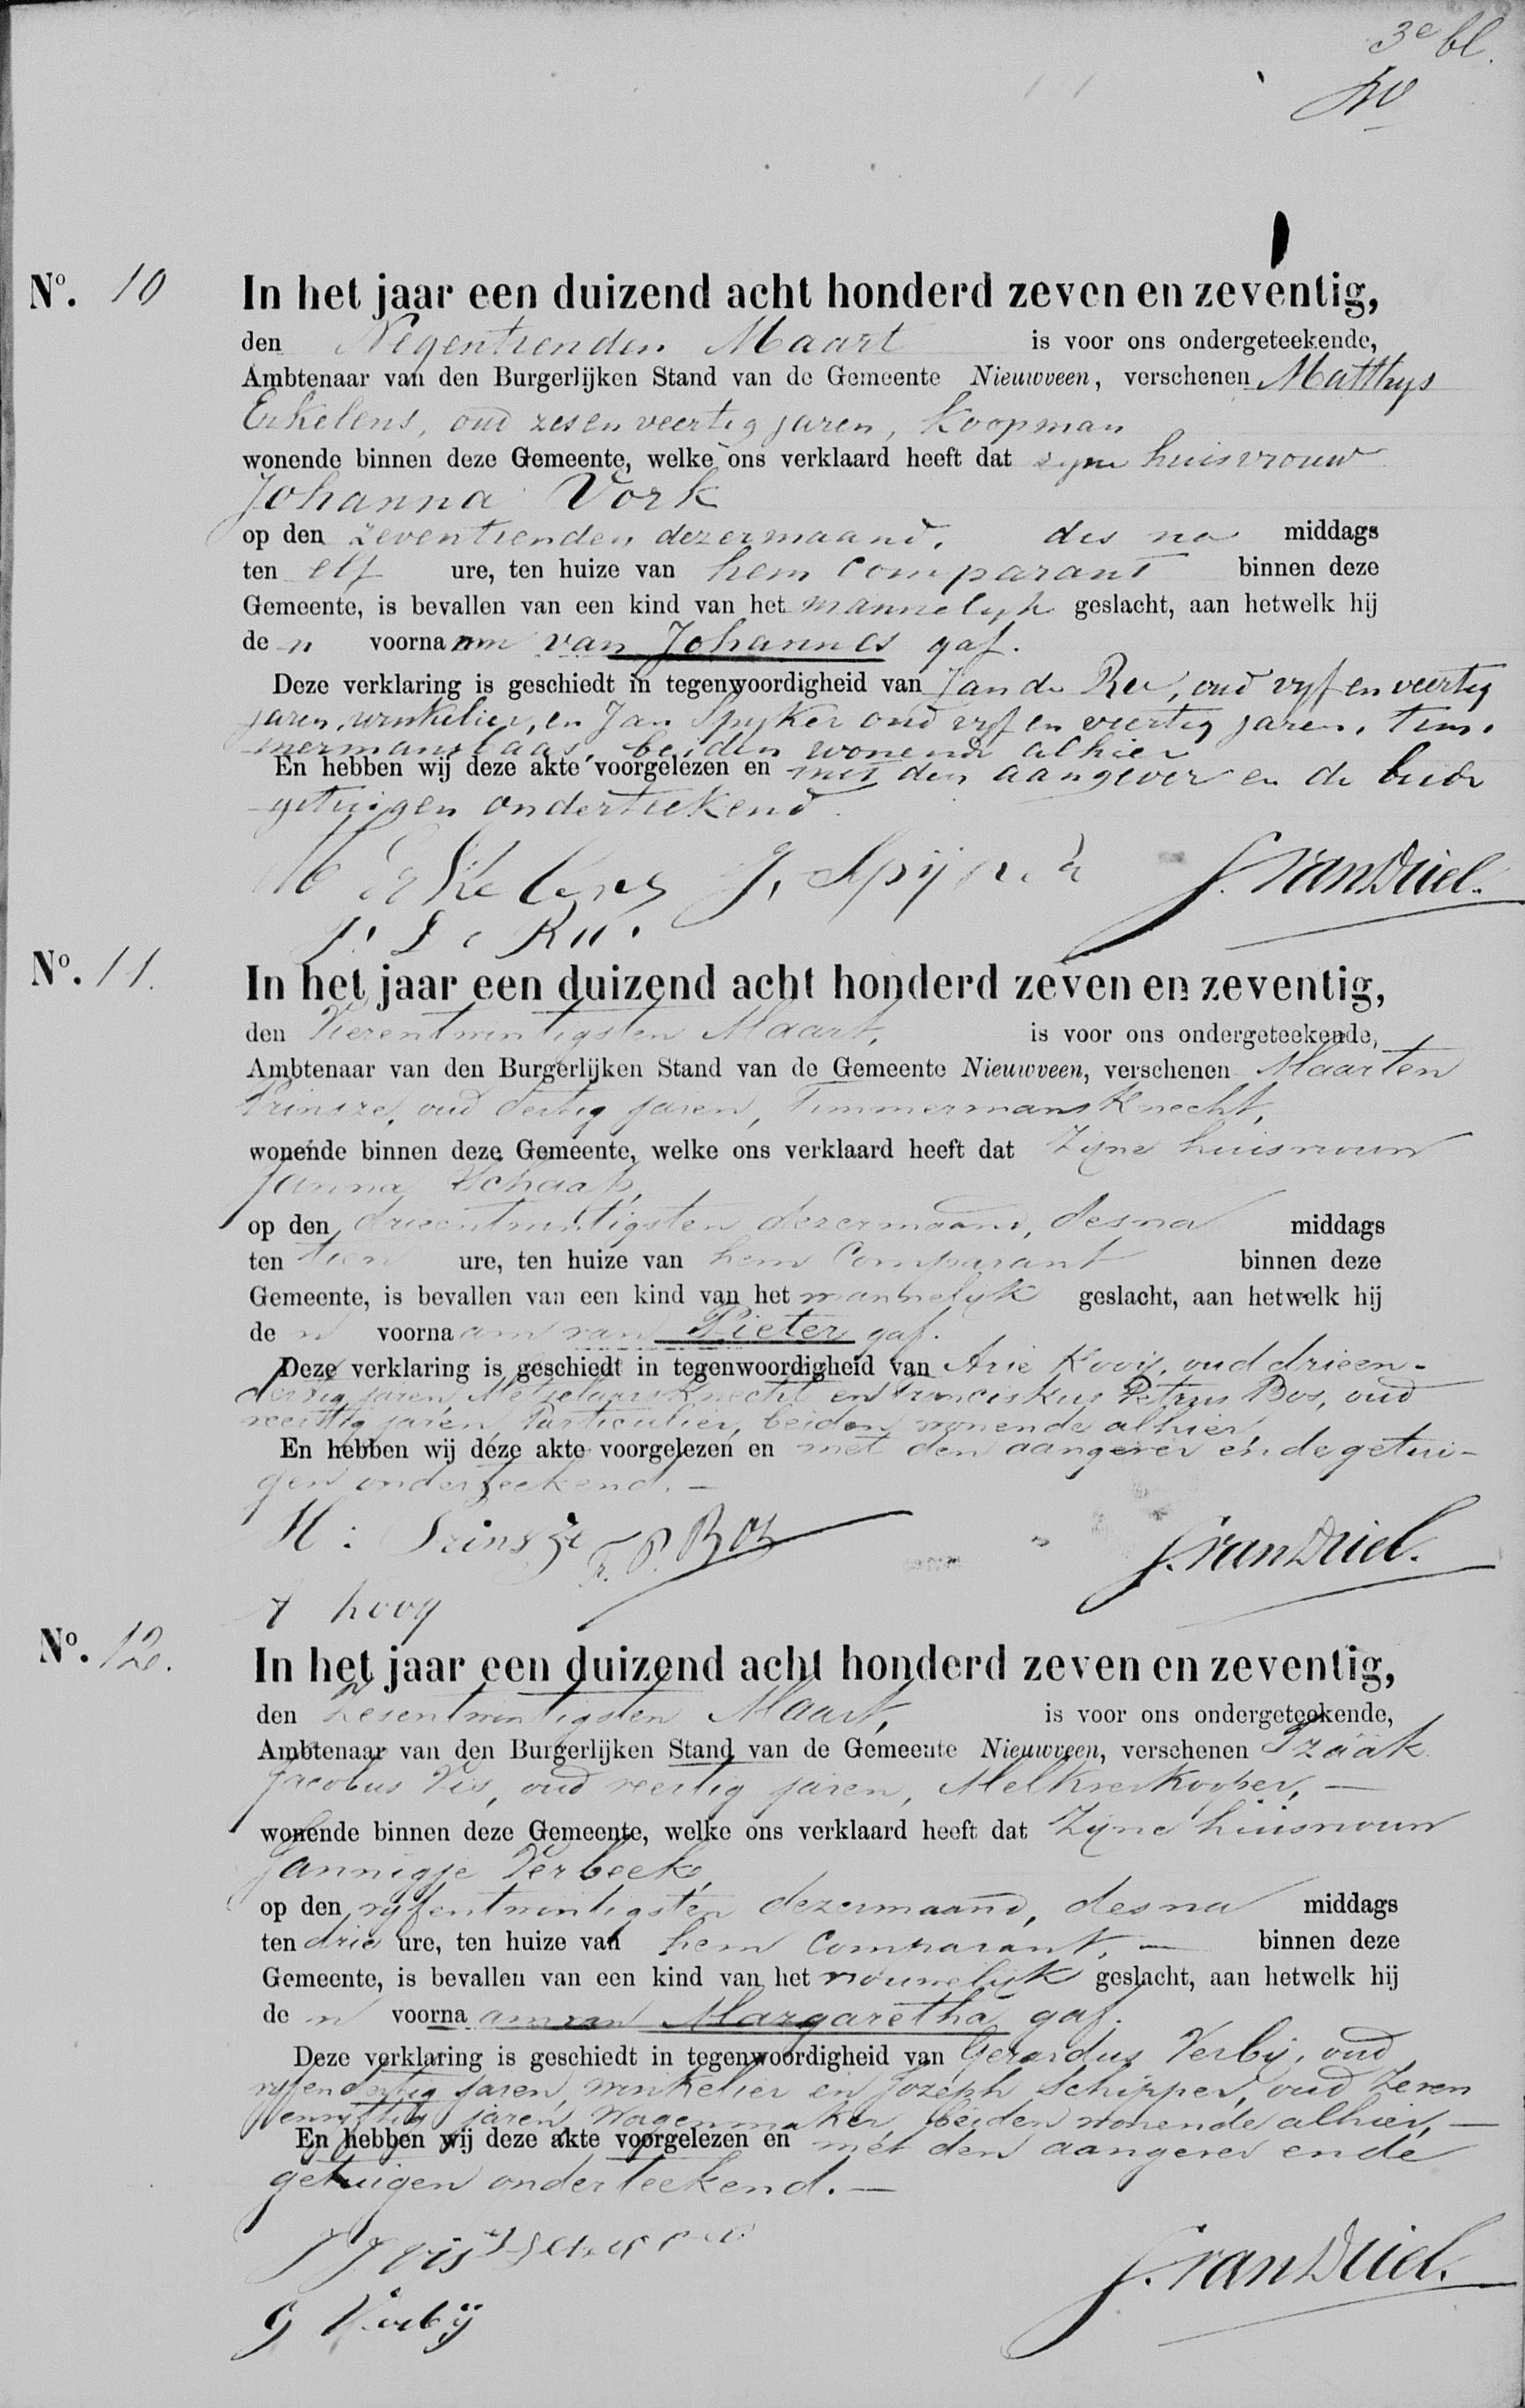 3e bl.
No. 10
In het jaar een duizend acht honderd zeven en zeventig,
den Negentienden Maart is voor ons ondergeteekende,
Ambtenaar van den Burgerlijken Stand van de Gemeente Nieuwveen, verschenen Matthys
Erkelens, oud zes en veertig jaren, Koopman
wonende binnen deze Gemeente, welke ons verklaard heeft dat zyne huisvrouw
Johanna Vork
op den zeventienden dezer maand, des na middags
ten elf ure, ten huize van hem Comparant binnen deze
Gemeente, is bevallen van een kind van het mannelyk geslacht, aan hetwelk hij
de n voornaam van Johannes gaf.
Deze verklaring is geschiedt in tegenwoordigheid van Jan de Ru, oud vyf en veertig
jaren, winkelier, en Jan Spyker oud vyf en veertig jaren, tim-
mermansbaas, beiden wonende alhier
En hebben wij deze akte voorgelezen en met den aangever en de beide
getuigen onderteekend.
M Erkelens J, Spijker J. van Driel.
J. De Ru.
No. 11.
In het jaar een duizend acht honderd zeven en zeventig,
den Vierentwintigsten Maart, is voor ons ondergeteekende,
Ambtenaar van den Burgerlijken Stand van de Gemeente Nieuwveen, verschenen Maarten
Prinsze, oud dertig jaren, Timmermansknecht,
wonende binnen deze Gemeente, welke ons verklaard heeft dat Zijne huisvrouw
Janna Schaap,
op den drieentwintigsten dezermaand, desna middags
ten tien ure, ten huize van hem Comparant binnen deze
Gemeente, is bevallen van een kind van het mannelijk geslacht, aan hetwelk hij
de n voornaam van Pieter gaf.
Deze verklaring is geschiedt in tegenwoordigheid van Arie Kooij, oud drieen-
dertig jaren, Metzelaarsknecht en Franciskus Petrus Bos, oud
veertig jaren, Particulier, beiden wonende alhier,
En hebben wij deze akte voorgelezen en met den aangever en de getui-
gen onderteekend. -
M: Prinsze F. P. Bos J. van Driel.
A kooy
No. 12.
In het jaar een duizend acht honderd zeven en zeventig,
den Zesentwintigsten Maart, is voor ons ondergeteekende,
Ambtenaar van den Burgerlijken Stand van de Gemeente Nieuwveen, verschenen Izaäk
Jacobus Vis, oud veertig jaren, Melkverkooper, -
wonende binnen deze Gemeente, welke ons verklaard heeft dat Zijne huisvrouw
Jannigje Verbeek,
op den vijfentwintigsten dezermaand, desna middags
ten drie ure, ten huize van hem Comparant, - binnen deze
Gemeente, is bevallen van een kind van het vrouwelijk geslacht, aan hetwelk hij
de n voornaam van Margaretha gaf.
Deze verklaring is geschiedt in tegenwoordigheid van Gerardus Verbij, oud
vijfendertig jaren, winkelier en Jozeph Schipper, oud Zeven
envijftig jaren, Wagenmaker, beiden wonende alhier, -
En hebben wij deze akte voorgelezen en met den aangever en de
getuigen onderteekend. -
I J Vis J. van Driel.
G Verbij